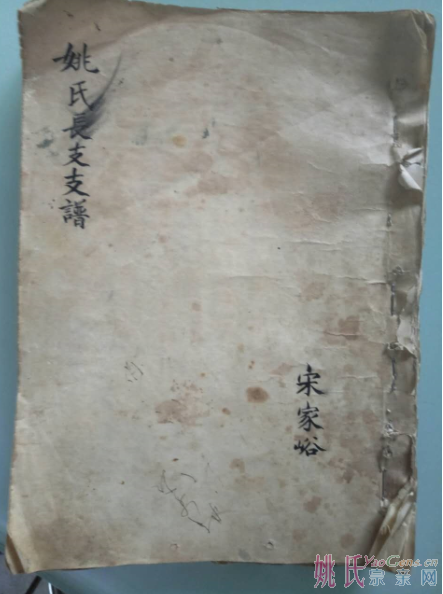 姚氏長支支譜
宋家峪
姚氏
YaoGens.cn
宗亲网